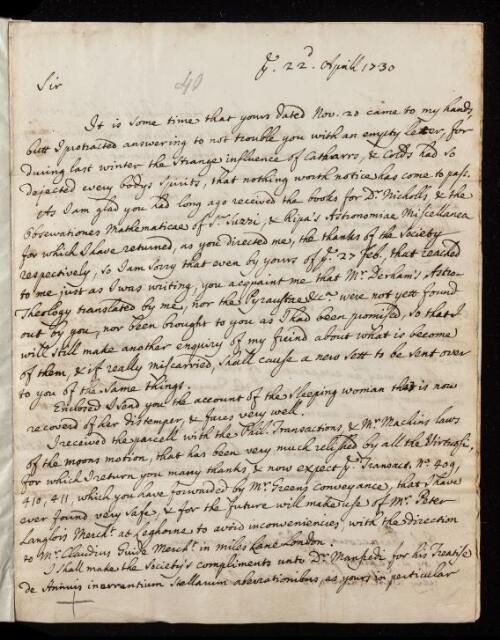 40
yᵉ. 22ᵈ. Aprill 1730
Sir
It is some time that yours dated Nov. 20 came to my hands,
butt I protracted answering to not trouble you with an empty letter, for
during last winter the strange influence of Catharrs, & Colds had so
dejected every bodys spirits, that nothing worth notice has come to pass.
As I am glad you had long ago received the books for Dʳ. Nicholls, & the
Observationes Mathematicae of Sʳ. Suzzi, & Ripa's Astronomiae Miscellanea
for which I have returned, as you directed me, the thanks of the Society
respectively, so I am sorry that even by yours of yᵉ. 27 Feb. that reached
to me just as I was writing, you acquaint me that Mʳ. Derham's Astro=
Theology translated by me, nor the Pyraustae &cᵃ. were not yett found
out by you, nor been brought to you as I had been promised, so that I
will still make another enquiry of my freind about what is become
of them, & if really miscarried, shall cause a new sett to be sent over
to you of the same things.
Enclosed I send you the account of the sleeping woman that is now
recoverd of her distemper, & fares very well.
I received the parcell with the Phil. Transactions, & Mʳ. Machins laws
of the moons motion, that has been very much relished by all the Virtuosi,
for which I return you many thanks, & now expect yᵉ. Transact. Nº. 409,
410, 411, which you have forwarded by Mʳ. Greens conveyance, that I have
ever found very safe, & for the future will make use of Mʳ. Peter
Langlois Merchᵗ. at Leghorne to avoid inconveniencies, with the direction
to Mʳ. Claudius Guide Merchᵗ. in miles Lane London.
I shall make the Society's compliments unto Dʳ. Manfredi for his Treatise
de Annuis inerrantium stellarum aberrationibus, as yours in particular